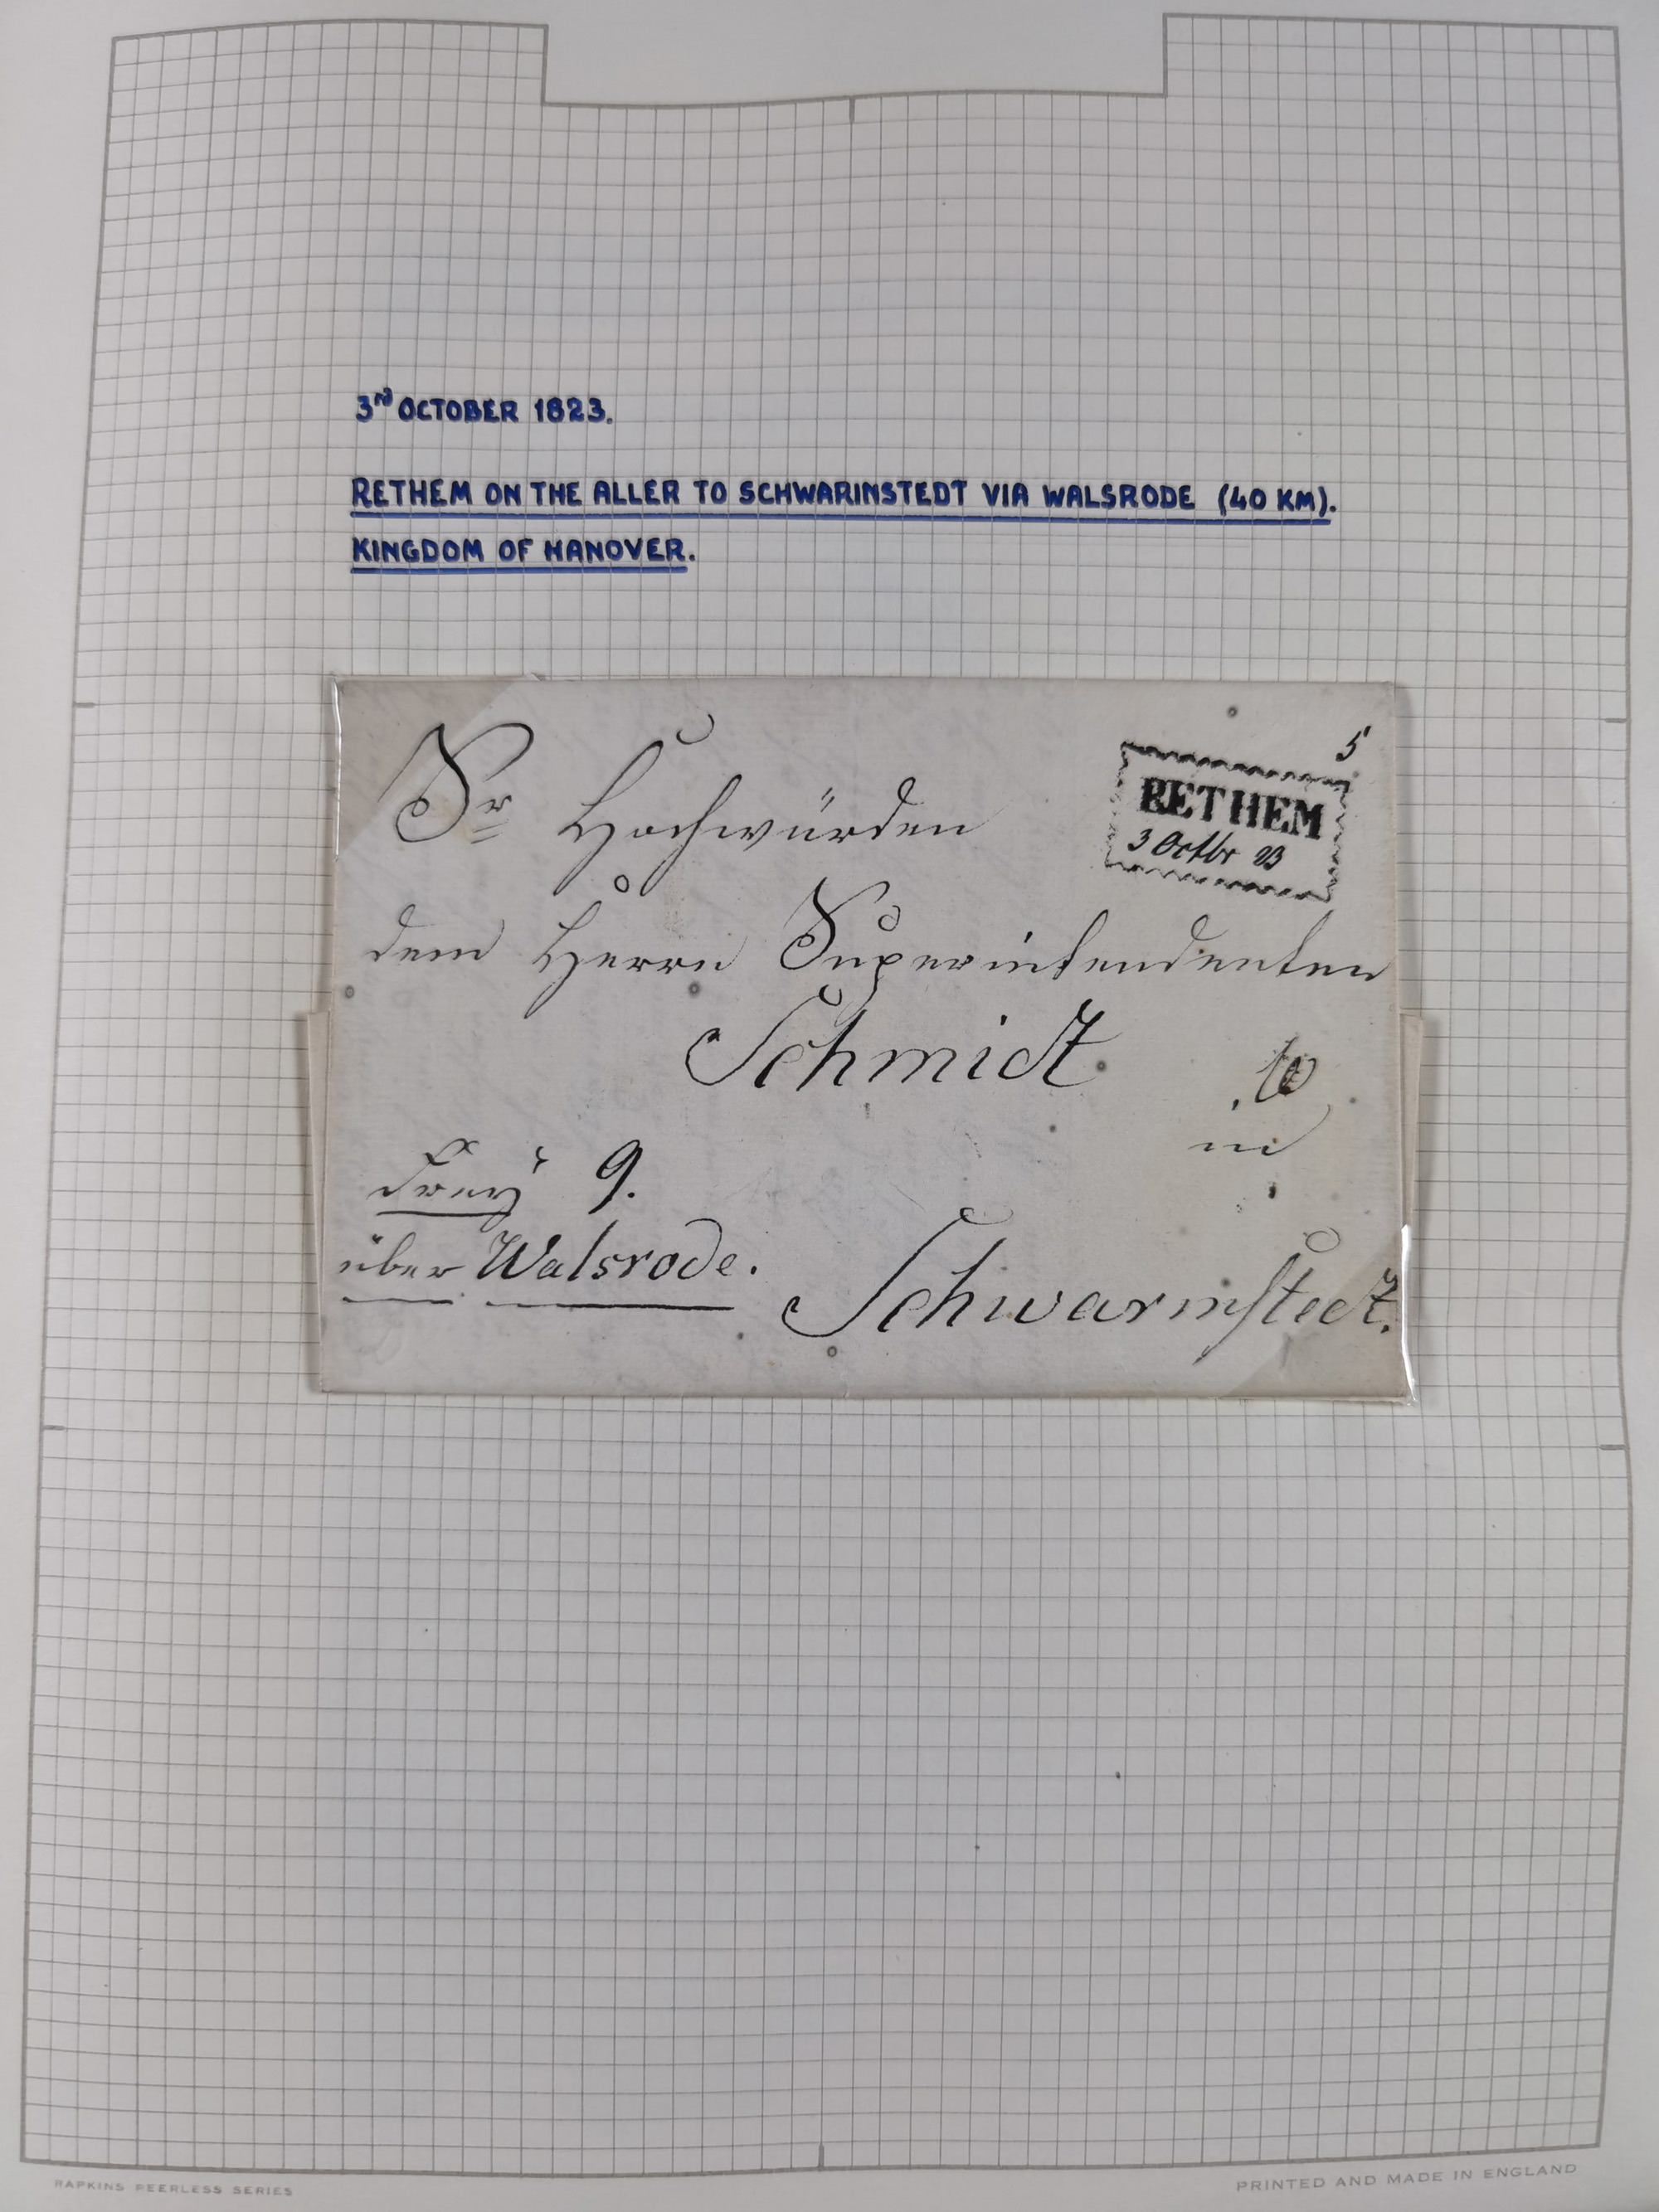 3rd OCTOBER 1823.
RETHEM ON THE ALLER TO SCHWARINSTEDT VIA WALSRODE (40 KM).
KINGDOM OF HANOVER.
5
RETHEM
3 Octbr 23
Sr Hochwürden
dem Herrn Superintendenten
Schmidt
in
frey 9.
über Walsrode.
Schwarmstedt.
RAPKINS PEERLESS SERIES
PRINTED AND MADE IN ENGLAND